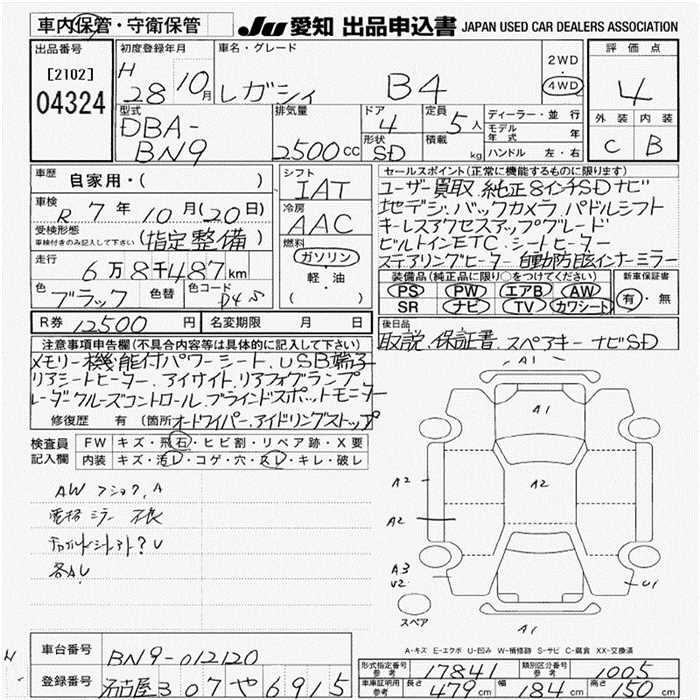 車内保管・守衛保管
JU 愛知 出品申込書 JAPAN USED CAR DEALERS ASSOCIATION
出品番号
[2102]
04324
初度登録年月
H 28 10月
車名・グレード
レガシィ B4
2WD
4WD
評価点
4
外装 内装
C B
型式
DBA-
BN9
排気量
2500cc
ドア
4
形状
SD
定員
5人
積載
kg
ディーラー・並行
モデル年式 年
ハンドル 左・右
車歴
自家用・( )
車検
R 7年10月(20日)
受検形態
車検付きのみ記入して下さい
(指定整備)
走行
6万8千487km
色
ブラック
色替
色コード
D4S
シフト
IAT
冷房
AAC
燃料
ガソリン
軽・油
( )
セールスポイント(正常に機能するものに限ります)
ユーザー買取 純正8インチSDナビ
地デジ.バックカメラ.パドルシフト
キーレスアクセスアップグレード
ビルトインETC.シートヒーター
ステアリングヒーター 自動防眩インナーミラー
装備品(純正品に限り○をつけてください)
PS PW エアB AW
SR ナビ TV カワシート
新車保証書
有・無
R券 12500円
名変期限 月 日
後日品
取説.保証書.スペアキー ナビSD
注意事項申告欄(不具合内容等は具体的に記入して下さい)
メモリー機能付パワーシート.USB端子
リアシートヒーター.アイサイト.リアフォグランプ
レーダークルーズコントロール.ブラインドスポットモニター
オードワイパー.アイドリングストップ
修復歴 有 (箇所
検査員記入欄
FW キズ・飛石・ヒビ割・リペア跡・X要
内装 キズ・汚レ・コゲ・穴・スレ・キレ・破レ
AW フショク.A
各AU
A1
A1
A2
A2
A2
A3
V2
U1
A1
スペア
A-キズ E-エクボ U-凹み W-補修跡 S-サビ C-腐食 XX-交換済
車台番号
BN9-012120
登録番号
名古屋 307 や 6915
形式指定番号
参考
17841
類別区分番号
参考
1005
車庫証明用
参考
長さ 479cm 幅 184cm 高さ 150cm